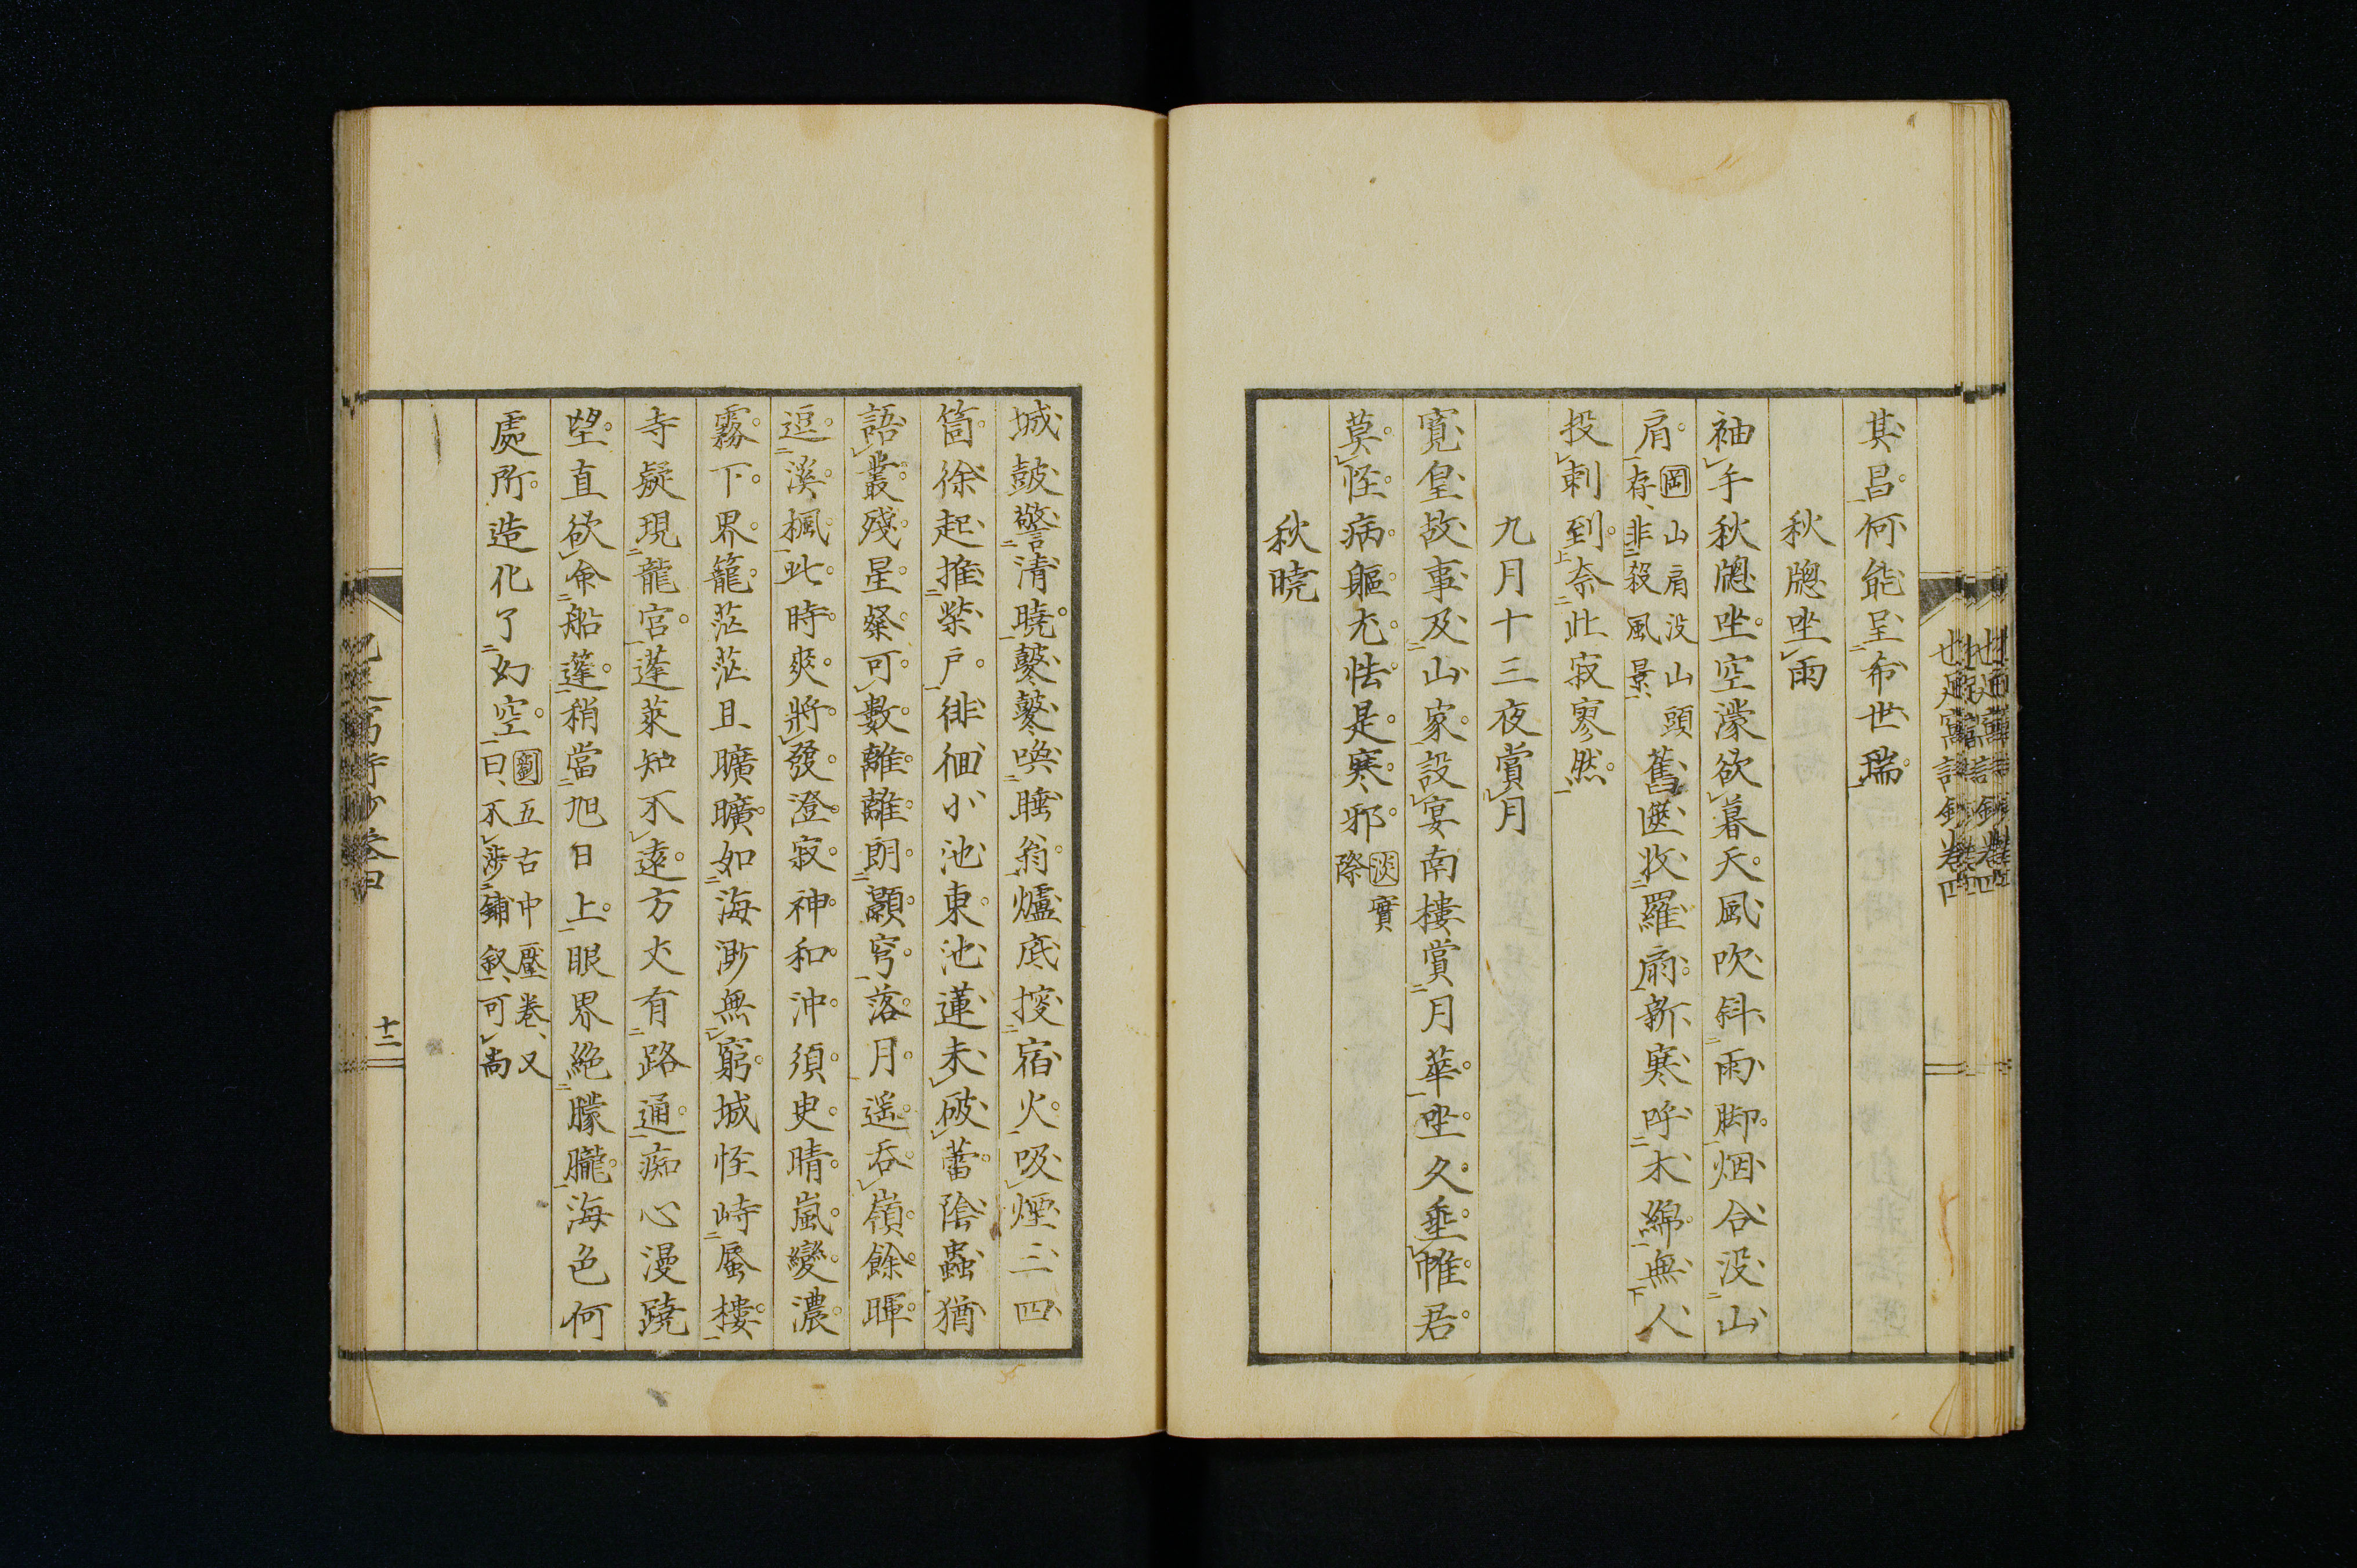 其昌何能呈布世瑞
秋牕坐雨
袖手秋牕坐空濛欲暮天風吹斜雨脚烟合没山
肩 岡 山肩没山頭
存非殺風景 舊匧收羅扇新寒呼木綿無人
投刺到奈此寂寥然
九月十三夜賞月
寛皇故事及山家設宴南樓賞月華坐久垂帷君
莫怪病軀尤怯是寒邪 淡 實
際
秋曉
城鼓警清曉鼕鼕喚睡翁爐底挖宿火吸煙三四
筒徐起推柴戸徘徊小池東池蓮未破蕾陰蟲猶
語叢殘星粲可數離離朗顥穹落月遥吞嶺餘暉
逗溪楓此時爽將發澄寂神和沖須臾晴嵐變濃
霧下界籠茫茫且曠曠如海渺無窮城怪峙蜃樓
寺疑現龍宮蓬萊知不遠方丈有路通痴心漫蹺
望直欲命船篷稍當旭日上眼界絶朦朧海色何
處所造化了幻空 劉 五古中壓巻又
曰不渉鋪叙可尚
十二